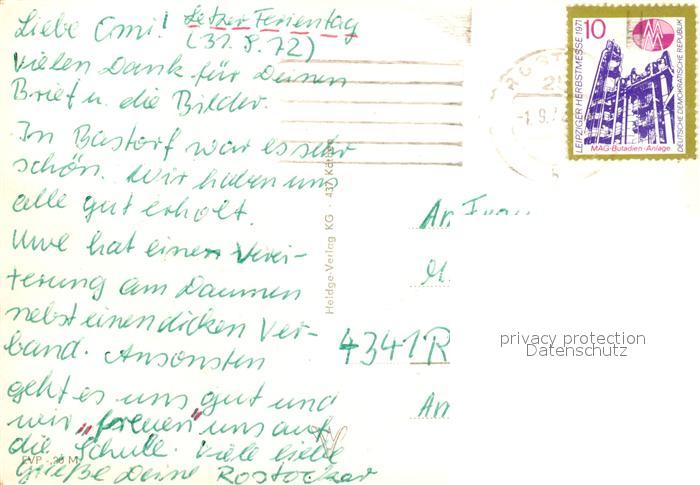 Liebe Omi! Letzer Ferientag
(31.8.72)
Vielen Dank für Deinen
Brief u. die Bilder.
In Bastorf war es sehr
schön. Wir haben uns
alle gut erholt.
Uwe hat einen Verei-
terung am Daumen
nebst einen dicken Ver-
band. Ansonsten
geht es uns gut und
wir "freuen" uns auf
die Schule. Viele liebe
Grüße Deine Rostocker
EVP -,20 M
Heldge-Verlag KG · 437 Köthen
ROSTOCK
-1.9.72
10
LEIPZIGER HERBSTMESSE 1971
DEUTSCHE DEMOKRATISCHE REPUBLIK
MAG-Butadien-Anlage
An Frau
M.
4341 R
Am
privacy protection
Datenschutz